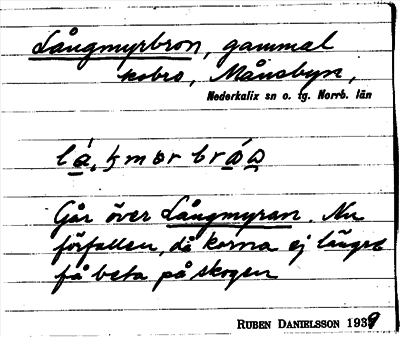 Långmyrbron, gammal
kobro, Månsbyn,
Nederkalix sn o. tg. Norrb. län
Går över Långmyran. Nu
förfallen, då korna ej längre
få beta på skogen
RUBEN DANIELSSON 1939